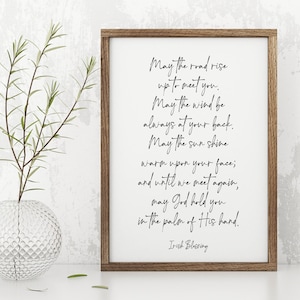 May the road rise
up to meet you.
May the wind be
always at your back.
May the sun shine
warm upon your face;
and until we meet again,
may God hold you
in the palm of His hand.
Irish Blessing